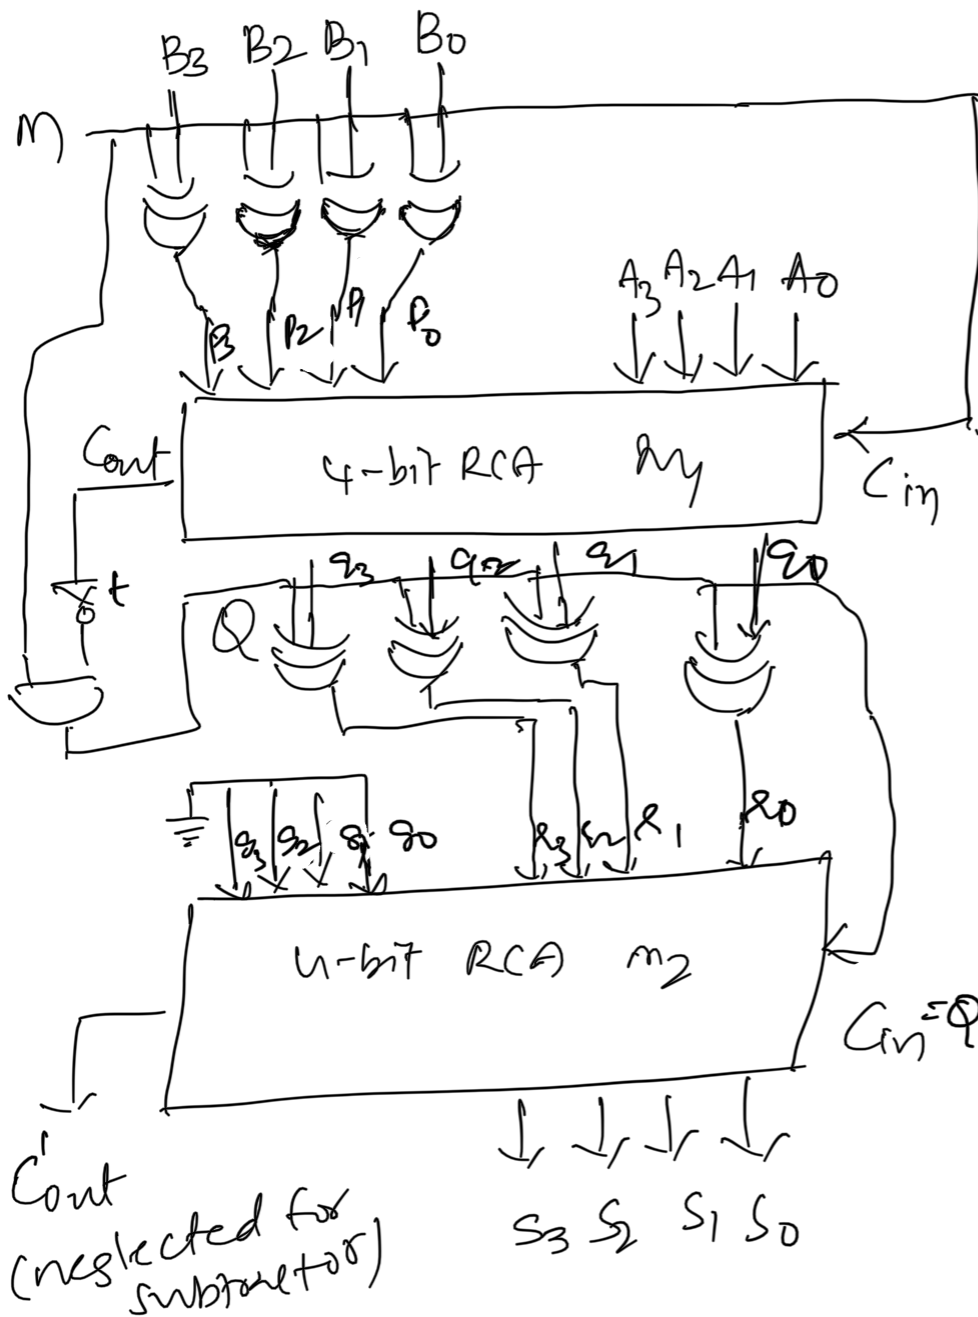 B3 B2 B1 B0
M
A3 A2 A1 A0
P3 P2 P1 P0
Cout
4-bit RCA M1
Cin
t
Q
q3 q2 q1 q0
g3 g2 g1 g0
r3 r2 r1 r0
4-bit RCA M2
Cin = Q
C'out
(neglected for
subtractor)
S3 S2 S1 S0